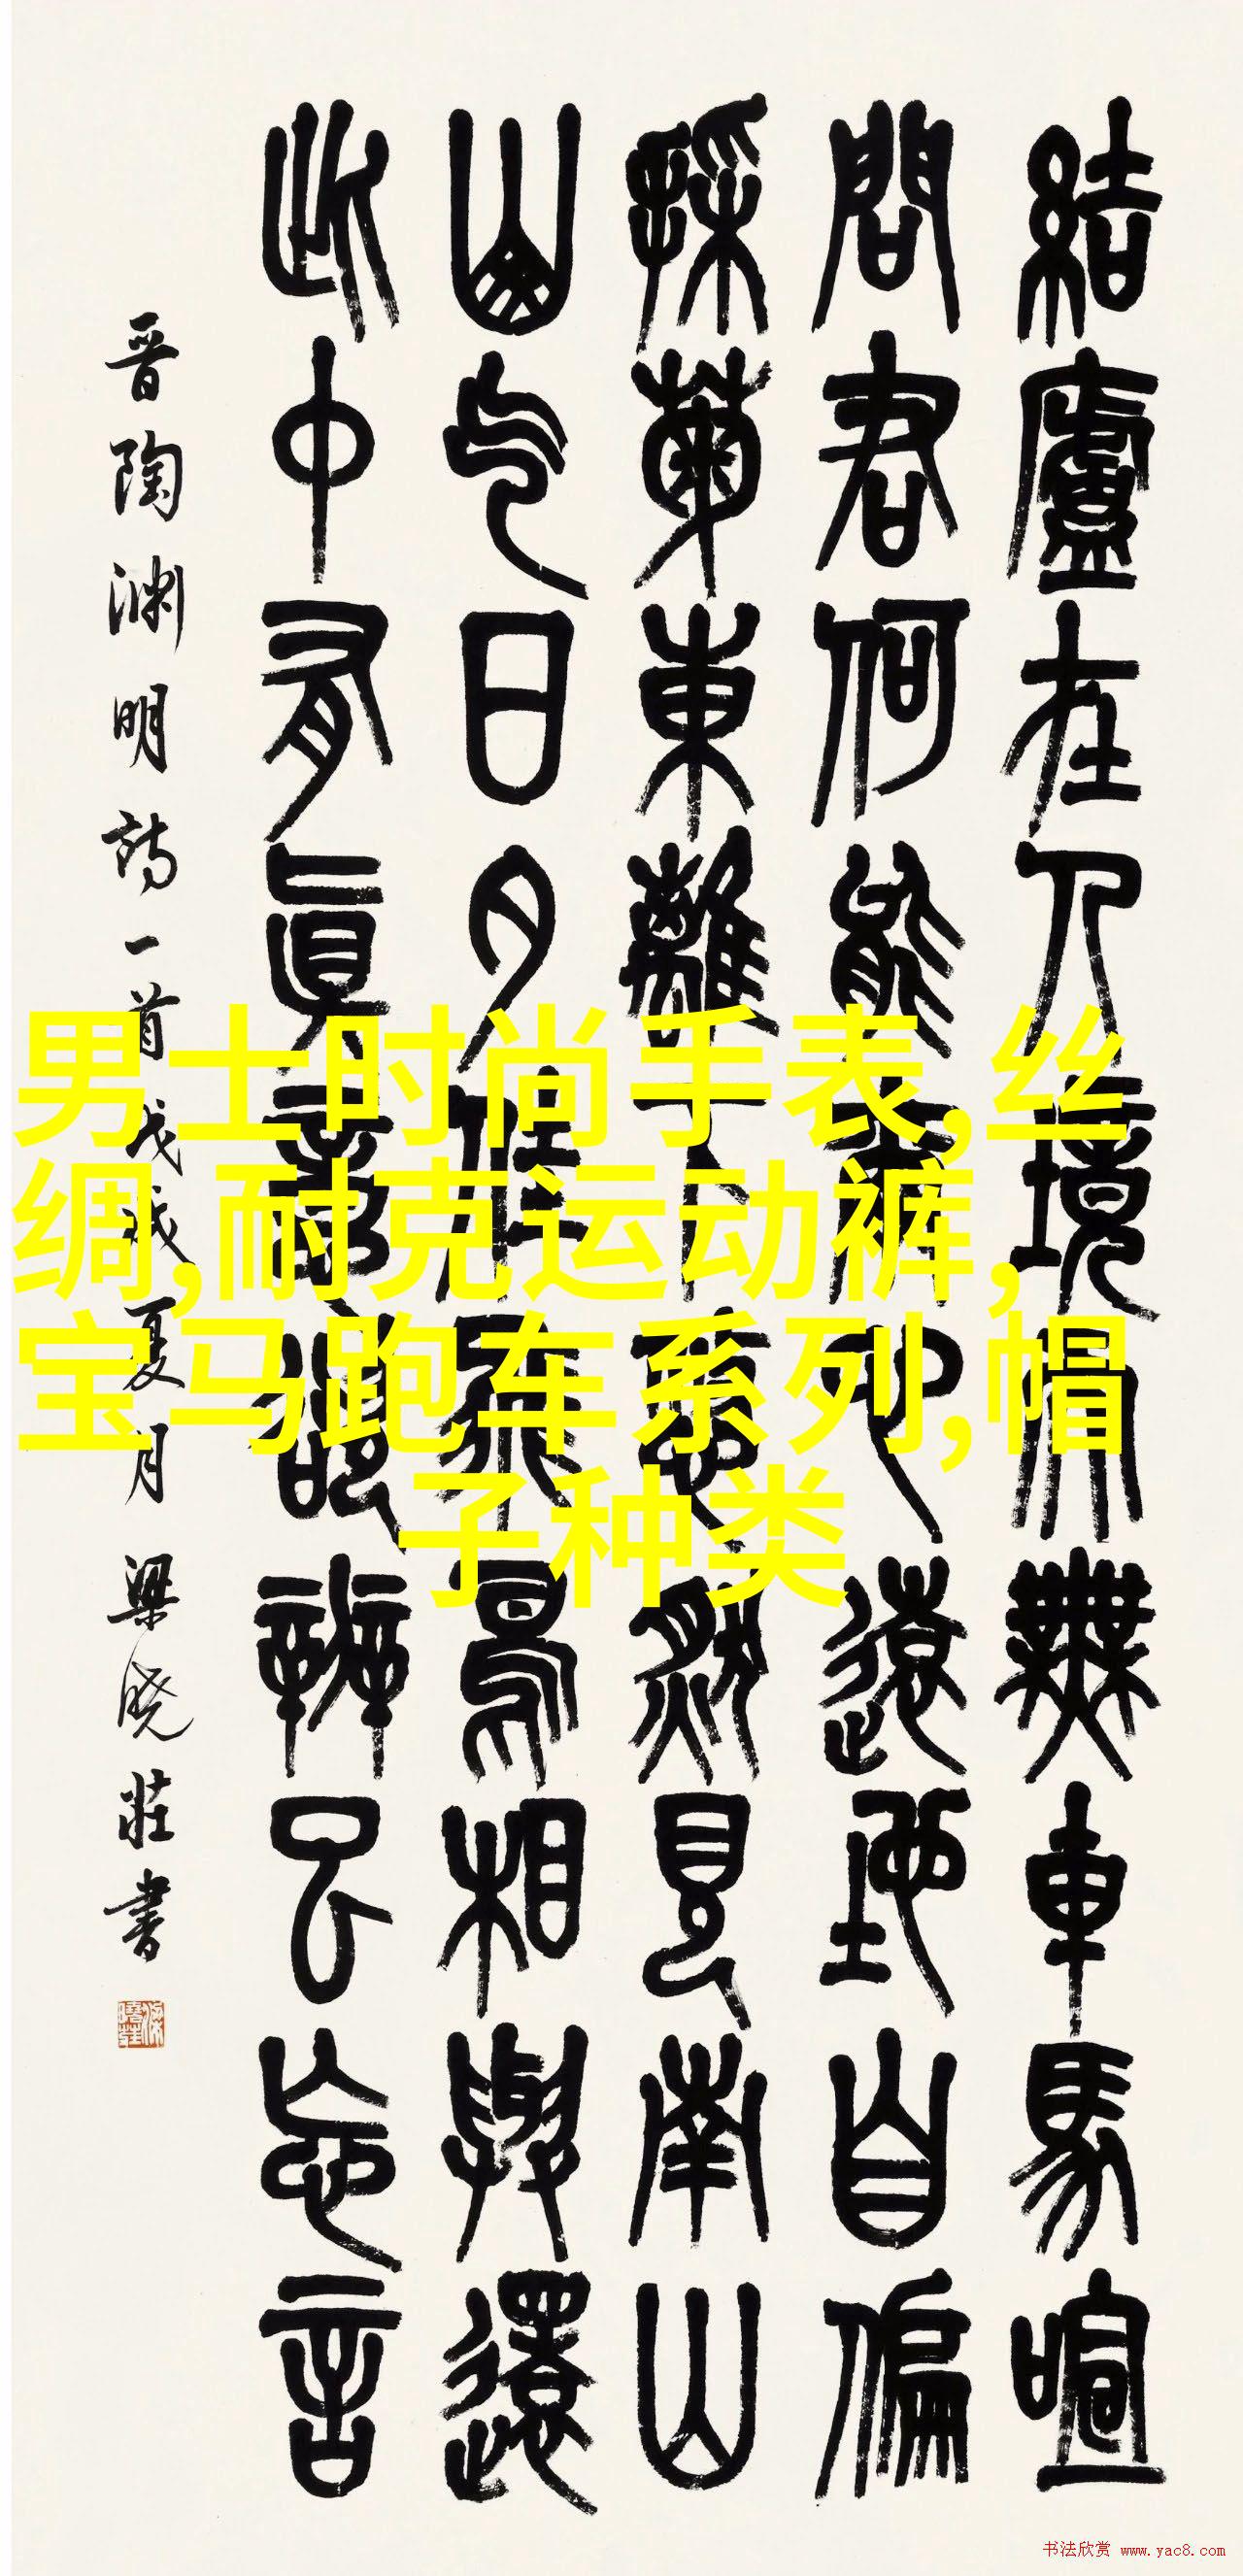 結廬在人境而無車馬喧
問君何能爾心遠地自偏
採菊東離下悠然見南山
山气日夕佳飛鳥相與還
此中有真意欲辨已忘言
晋陶渊明詩一首戊戌夏月梁晓莊書
男士时尚手表,丝
绸,耐克运动裤,
宝马跑车系列,帽
子种类
书法欣赏 www.yac8.com